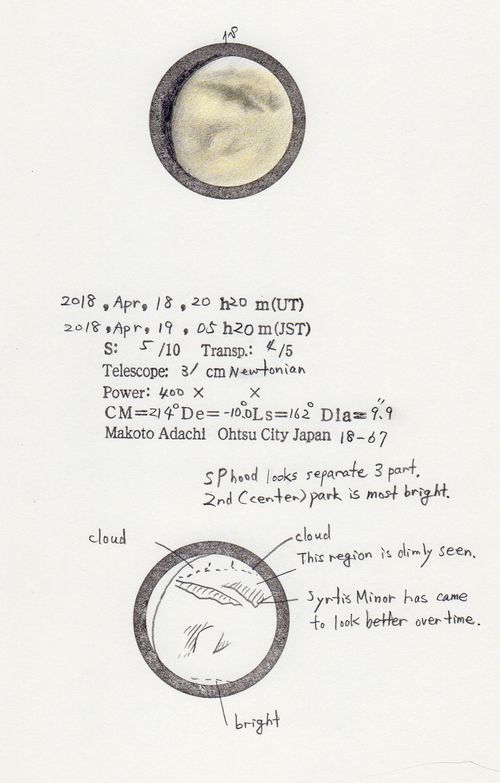 18
2018, Apr, 18, 20 h20 m(UT)
2018, Apr, 19, 05 h20 m(JST)
S: 5 /10 Transp.: 4/5
Telescope: 31 cm Newtonian
Power: 400 × ×
CM=214° De= -10.0° Ls=162° Dia= 9.9"
Makoto Adachi Ohtsu City Japan 18-67
SPhood looks separate 3 part.
2nd (center) park is most bright.
cloud
cloud
This region is dimly seen.
Syrtis Minor has came
to look better over time.
bright